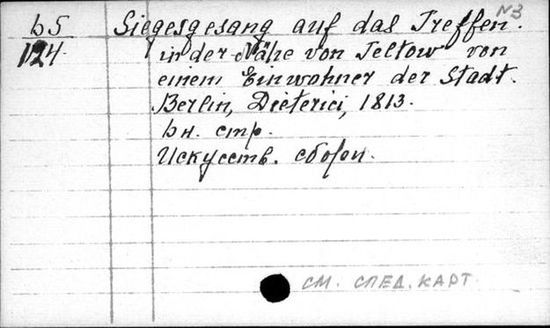 N3
b5
124
Siegesgesang auf das Treffen
in der Nähe von Teltow von
einem Einwohner der Stadt.
Berlin, Dieterici, 1813.
bн. стр.
Искусств. сборн.
СМ. СПЕЦ. КАРТ.